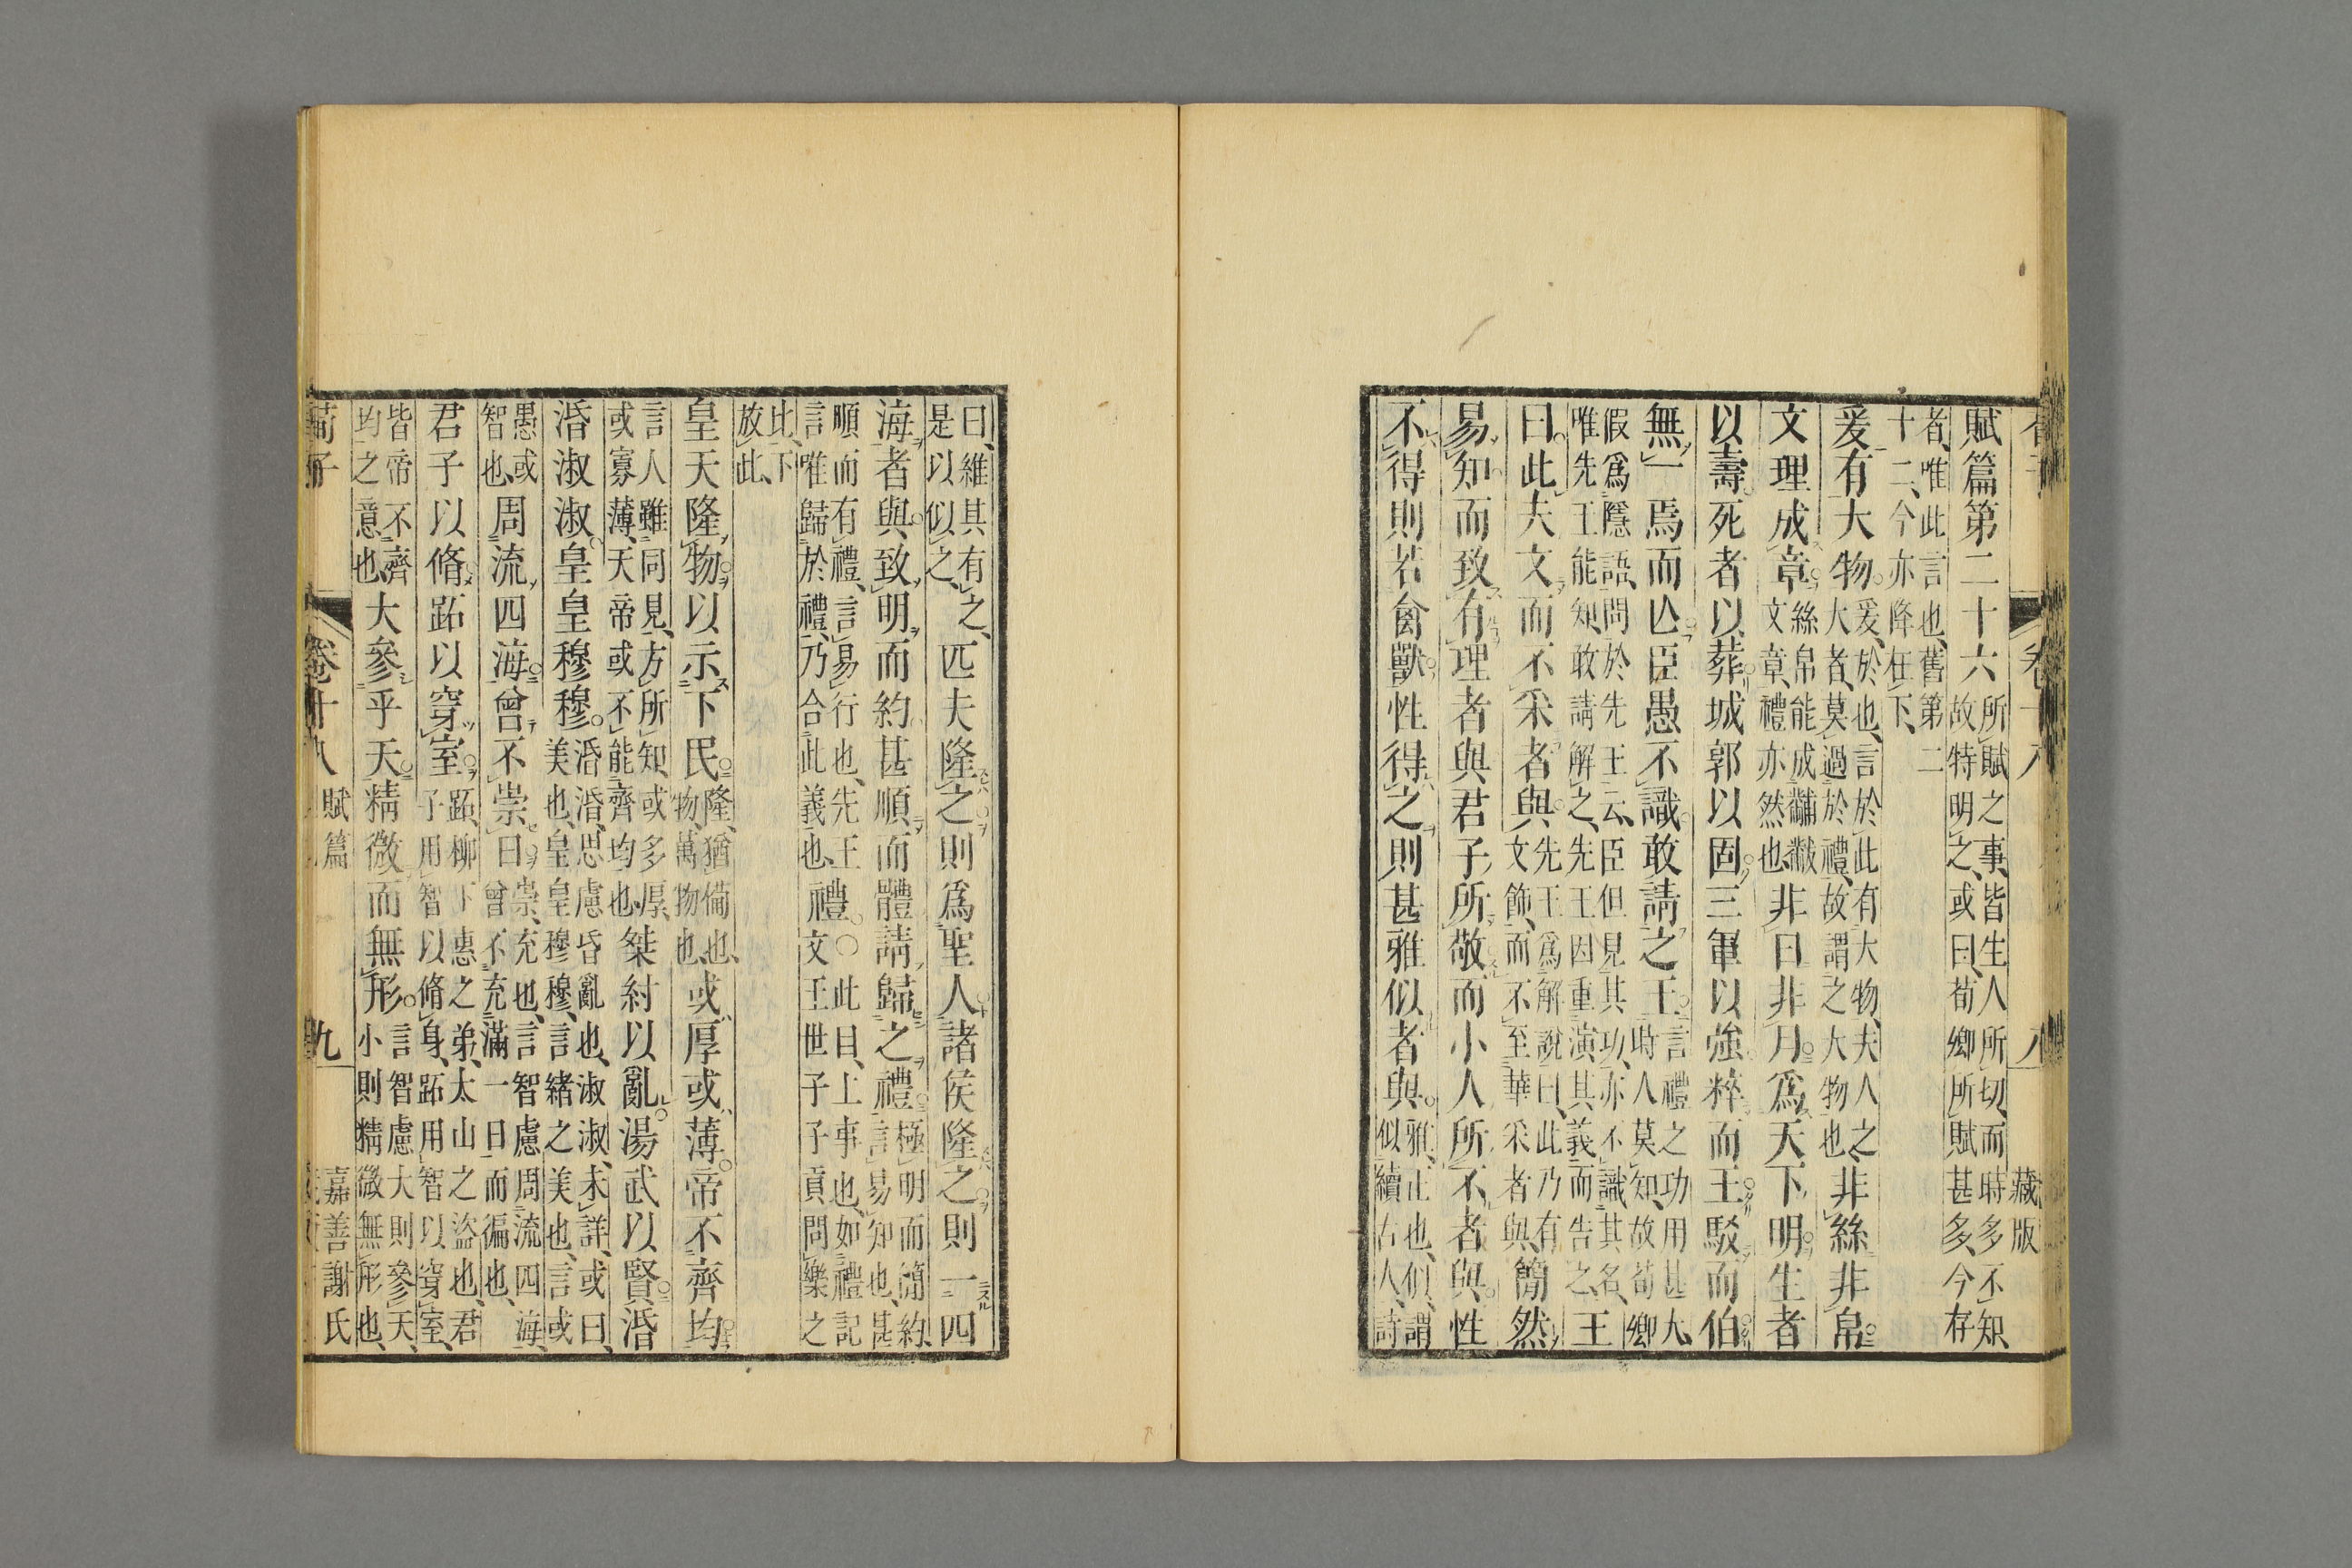 藏版
賦篇第二十六所賦之事、皆生人所切、而時多不知、故特明之、或曰、荀卿所賦甚多、今存
者、唯此言也、舊第二十二、今亦降在下、
爰有大物。爰、於也、言於此有大物、夫人之大者、莫過於禮、故謂之大物也、非絲非帛
文理成章。絲帛能成黼黻文章、禮亦然也、非日非月。爲天下明。生者
以壽。死者以葬。城郭以固。三軍以強。粹而王。駁而伯。
無一焉而亾。臣愚不識。敢請之王。言禮之功用甚大、時人莫知、故荀卿
假爲隱語、問於先王云、臣但見其功、亦不識其名、唯先王能知、敢請解之、先王因重演其義而告之、王
曰。此夫文而不采者與。先王爲解說曰、此乃有文飾、而不至華采者與、簡然
易知而致有理者與君子所敬而小人所不者與。性
不得則若禽獸性得之則甚雅似者與。雅、正也、似、謂似續古人、詩
曰、維其有之、是以似之、匹夫隆之則爲聖人。諸侯隆之則一四
海者與。致明而約。甚順而體請歸之禮。極明而簡約、言易知也、甚
順而有禮、言易行也、先王言唯歸於禮、乃合此義也、禮。〇此目、上事也、如禮記文王世子子貢問樂之
比、下放此、
皇天隆物。以示下民。隆、猶備也、物、萬物也、或厚或薄。帝不齊均。
言人雖同見、方所知、或多厚、或寡薄、天帝或不能齊均也、桀紂以亂。湯武以賢。涽
涽淑淑。皇皇穆穆。涽涽、思慮昏亂也、淑淑、未詳、或曰、美也、皇皇穆穆、言緖之美也、言或
愚或智也、周流四海。曾不崇日。崇、充也、言智慮周流四海、曾不充滿一日而徧也、
君子以脩。跖以穿室。跖、柳下惠之弟、太山之盜也、君子用智以脩身、跖用智以穿室、
皆帝不齊均之意也、大參乎天。精微而無形。言智慮大則參天、小則精微無形也、
荀子 卷十八 賦篇 九 嘉善謝氏